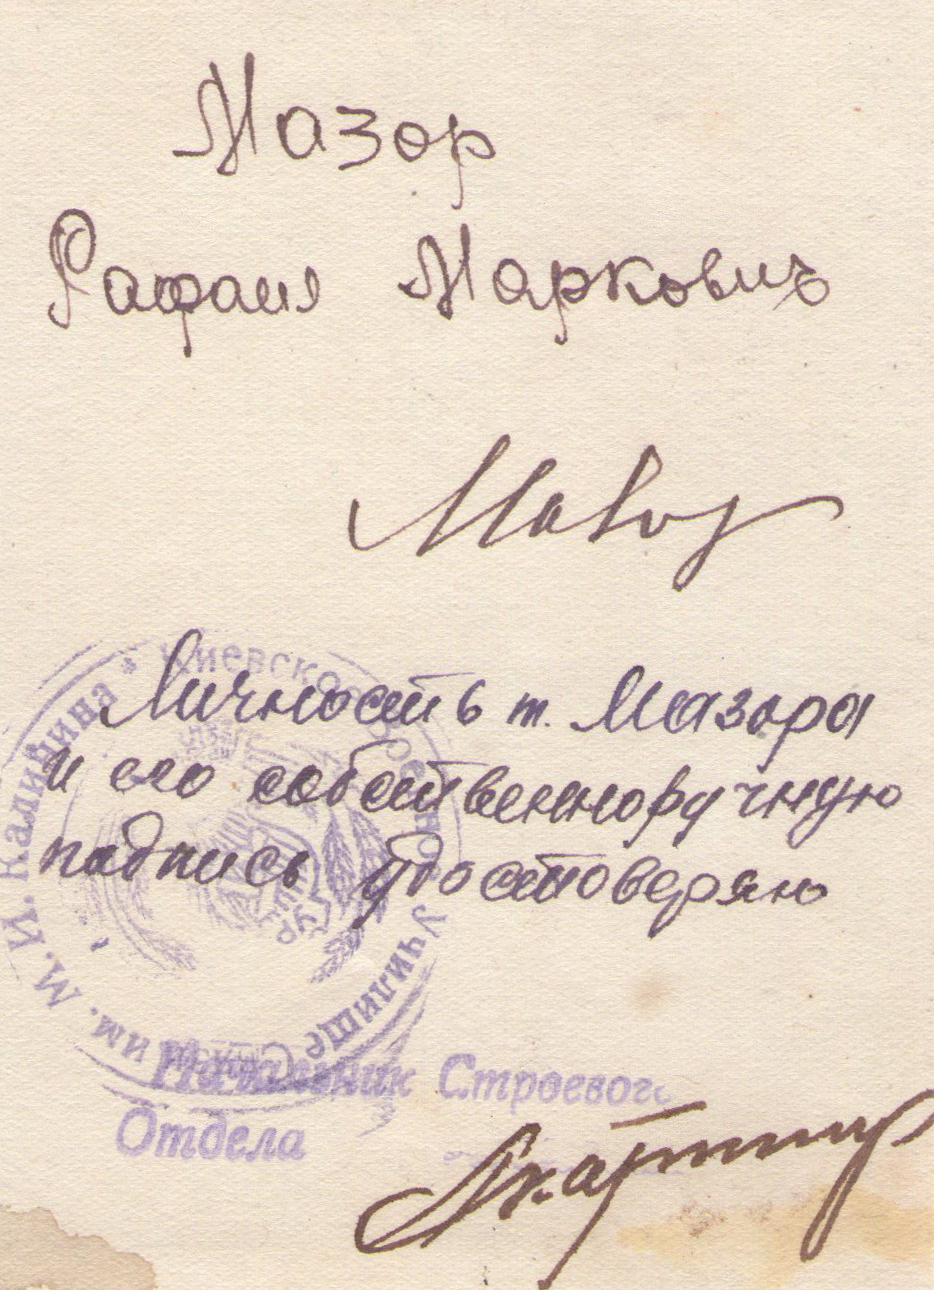 Мазор
Рафаил Маркович
Мазор
Личность т. Мазора
и его собственноручную
подпись удостоверяю
Киевское Военное Училище им. М. И. Калинина
Начальник Строевого
Отдела